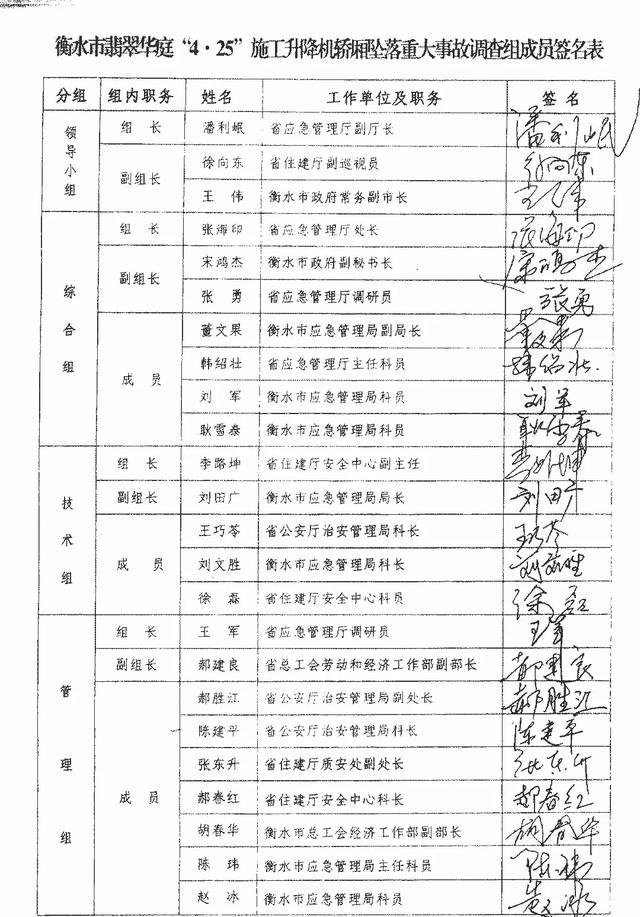 衡水市翡翠华庭“4·25”施工升降机轿厢坠落重大事故调查组成员签名表
分组 组内职务 姓名 工作单位及职务 签名
领导小组 组长 潘利岷 省应急管理厅副厅长 潘利岷
副组长 徐向东 省住建厅副巡视员 徐向东
王伟 衡水市政府常务副市长 王伟
综合组 组长 张海印 省应急管理厅处长 张海印
副组长 宋鸿杰 衡水市政府副秘书长 宋鸿杰
张勇 省应急管理厅调研员 张勇
成员 董文果 衡水市应急管理局副局长 董文果
韩绍壮 省应急管理厅主任科员 韩绍壮
刘军 衡水市应急管理局科员 刘军
耿雪泰 衡水市应急管理局科员 耿雪泰
技术组 组长 李路坤 省住建厅安全中心副主任
副组长 刘田广 衡水市应急管理局局长 刘田广
成员 王巧苓 省公安厅治安管理局科长 王巧苓
刘文胜 衡水市应急管理局科员 刘文胜
徐磊 省住建厅安全中心科员 徐磊
管理组 组长 王军 省应急管理厅调研员 王军
副组长 郝建良 省总工会劳动和经济工作部副部长 郝建良
成员 郝胜江 省公安厅治安管理局副处长 郝胜江
陈建平 省公安厅治安管理局科长 陈建平
张东升 省住建厅质安处副处长 张东升
郝春红 省住建厅安全中心科长 郝春红
胡春华 衡水市总工会经济工作部副部长 胡春华
陈玮 衡水市应急管理局主任科员 陈玮
赵冰 衡水市应急管理局科员 赵冰